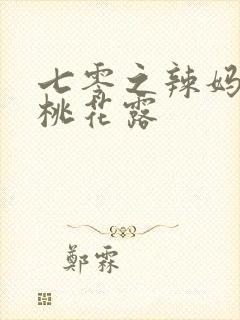 七零之辣妈
桃花露
鄭霖